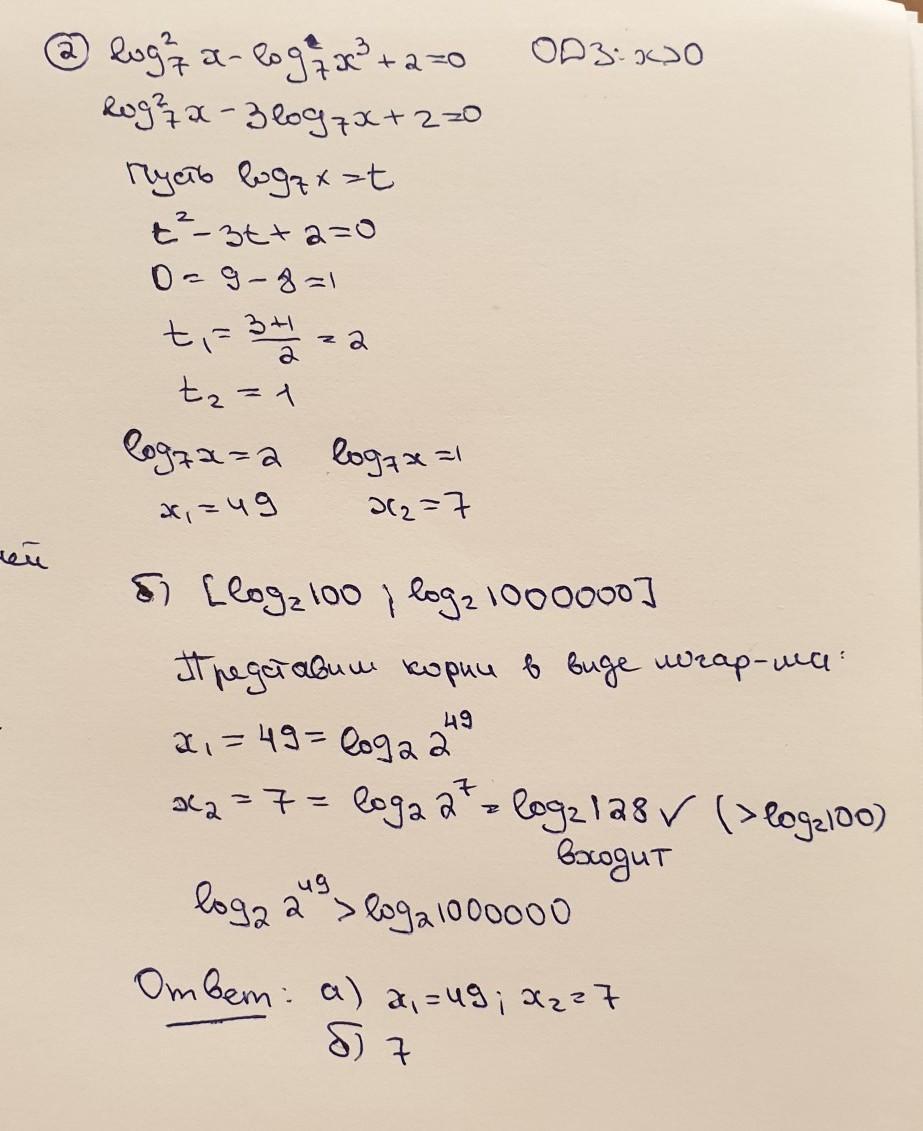 ② log²₇ x - log₇ x³ + 2 = 0 ОДЗ: x>0
log²₇ x - 3 log₇ x + 2 = 0
Пусть log₇ x = t
t² - 3t + 2 = 0
D = 9 - 8 = 1
t₁ = (3+1)/2 = 2
t₂ = 1
log₇ x = 2 log₇ x = 1
x₁ = 49 x₂ = 7
ей
б) [log₂ 100 ; log₂ 1000000]
Представим корни в виде логар-ма:
x₁ = 49 = log₂ 2⁴⁹
x₂ = 7 = log₂ 2⁷ = log₂ 128 ✓ (> log₂ 100)
входит
log₂ 2⁴⁹ > log₂ 1000000
Ответ: а) x₁ = 49 ; x₂ = 7
б) 7